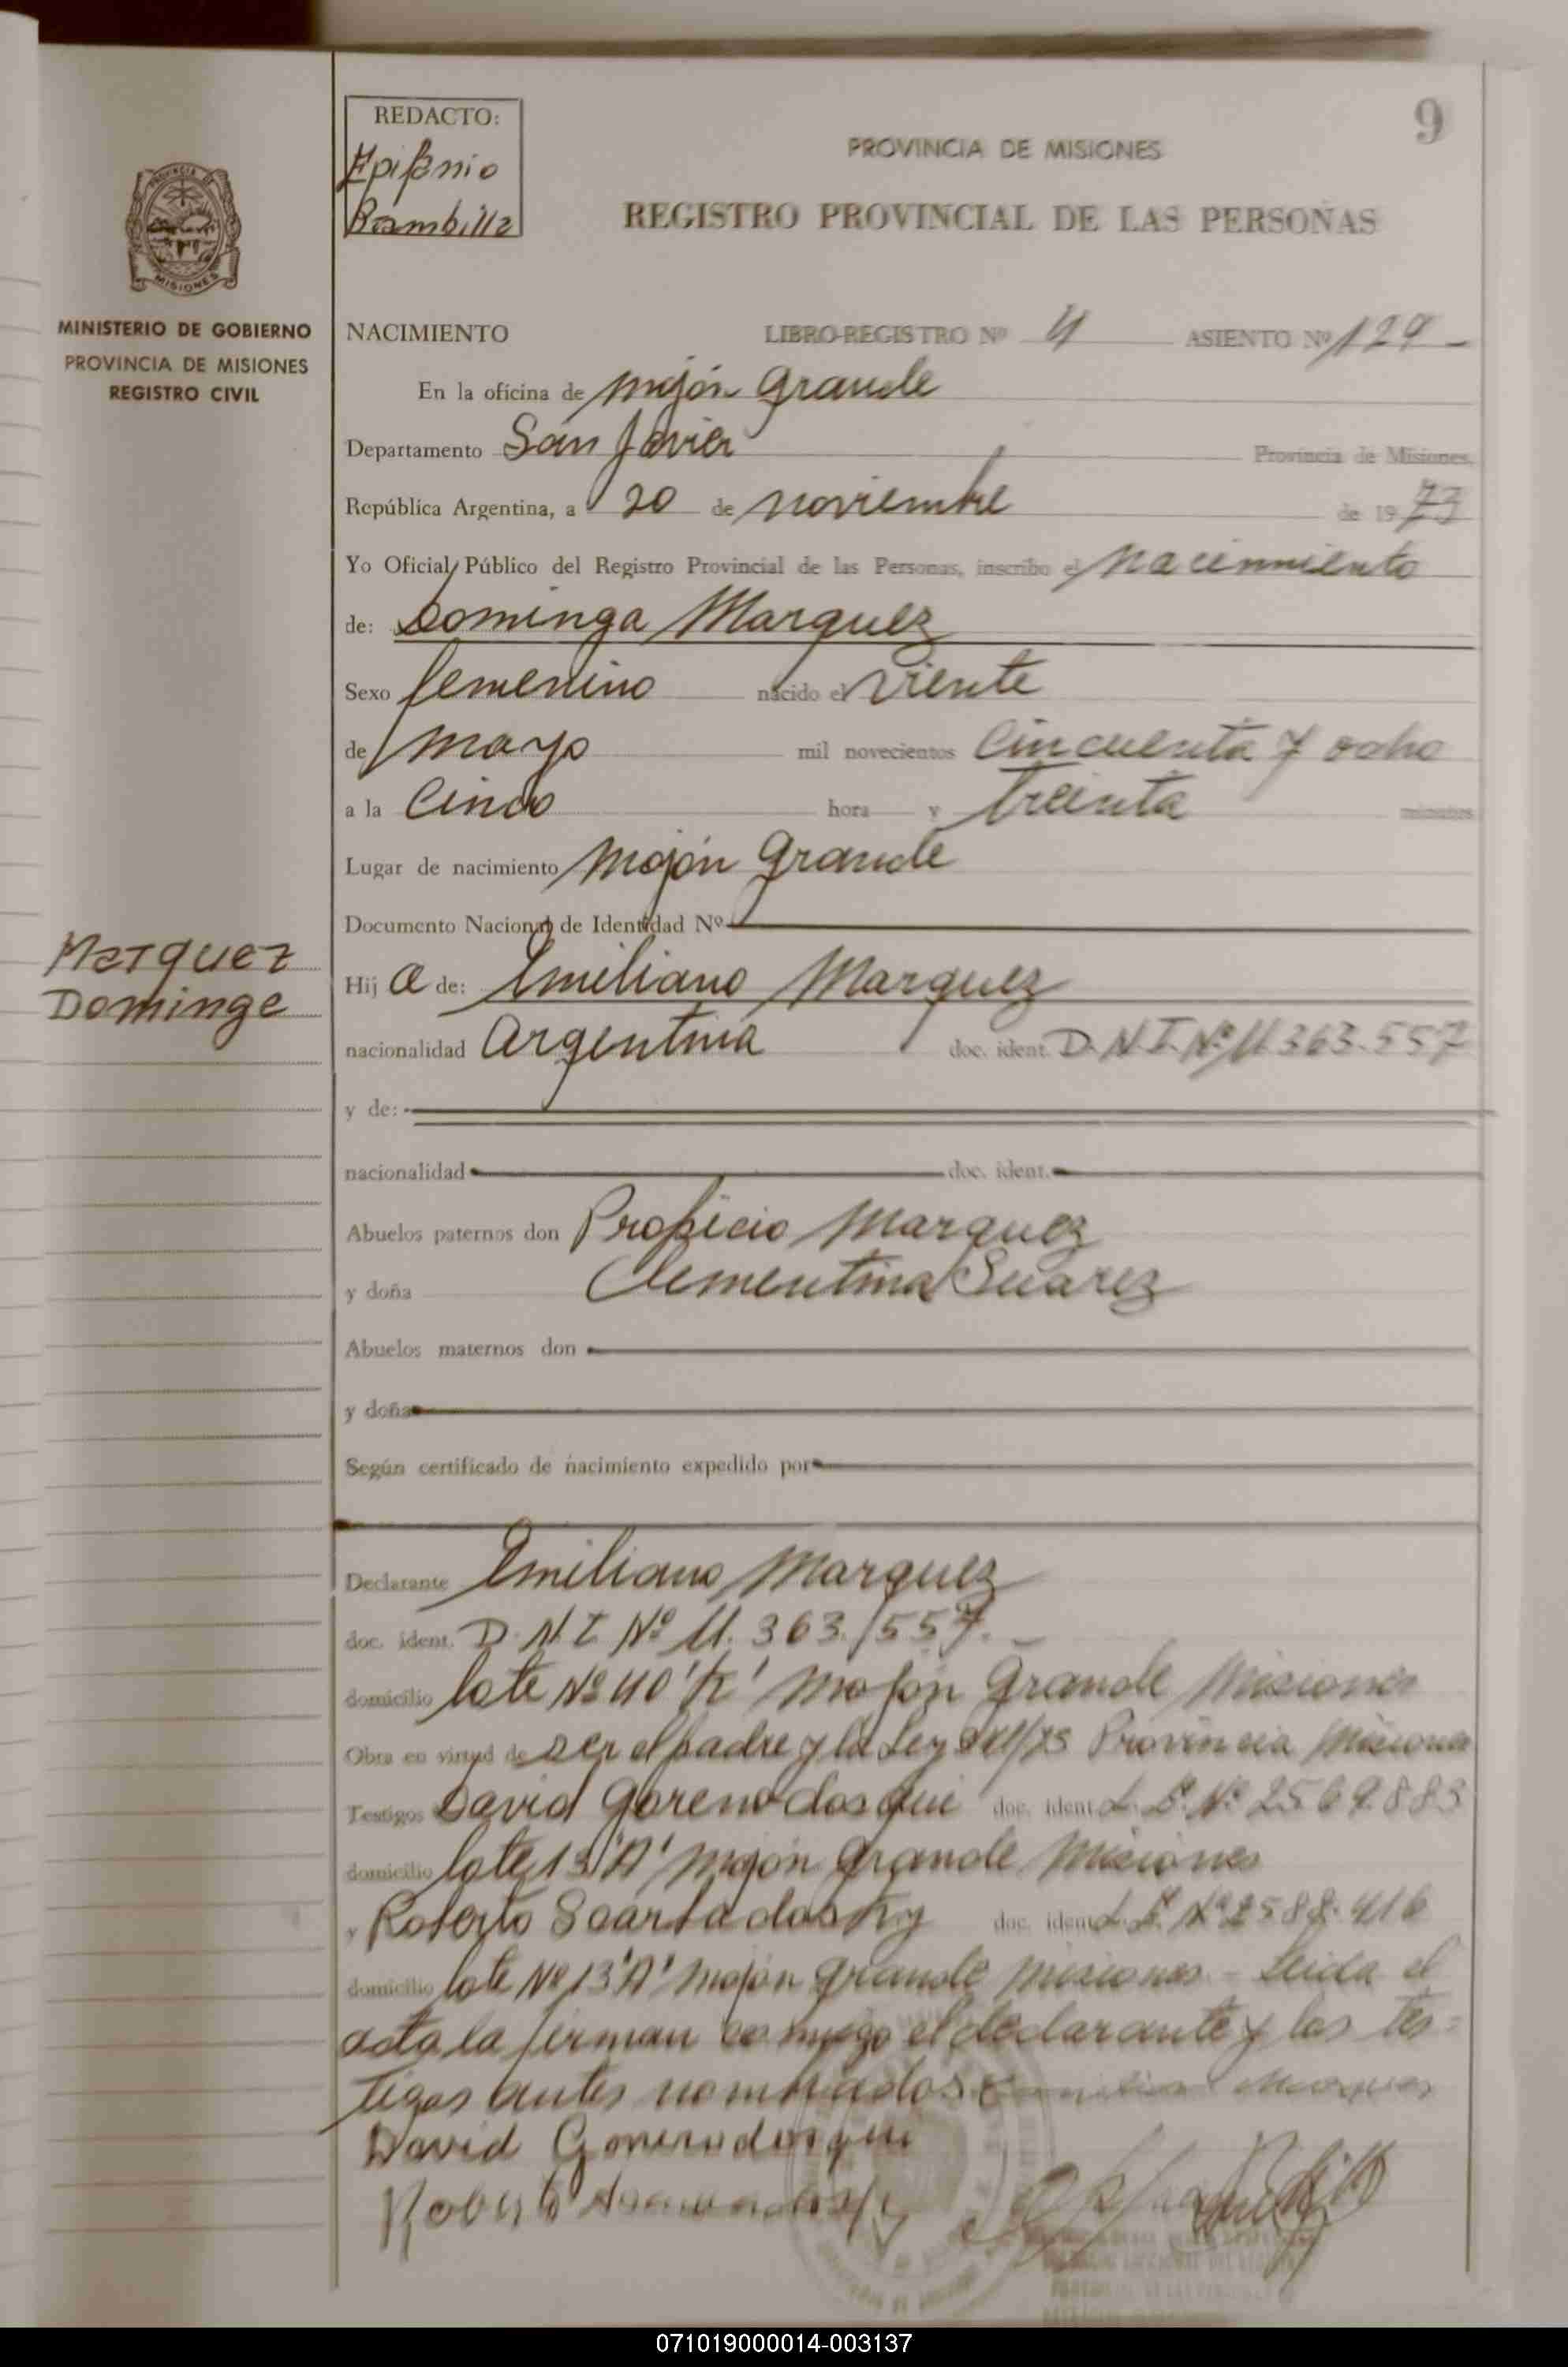 9
REDACTO:
Epifanio
Brambilla
PROVINCIA DE MISIONES
REGISTRO PROVINCIAL DE LAS PERSONAS
PROVINCIA DE
MISIONES
MINISTERIO DE GOBIERNO
PROVINCIA DE MISIONES
REGISTRO CIVIL
NACIMIENTO LIBRO-REGISTRO Nº 4 ASIENTO Nº 129 -
En la oficina de Mojón Grande
Departamento San Javier Provincia de Misiones,
República Argentina, a 20 de noviembre de 1973
Yo Oficial Público del Registro Provincial de las Personas, inscribo el Nacimiento
de: Dominga Marquez
Sexo femenino nacido el viente
de mayo mil novecientos cincuenta y ocho
a la Cinco hora y treinta minutos
Lugar de nacimiento Mojón Grande
Documento Nacional de Identidad Nº
Marquez
Dominga
Hij a de: Emiliano Marquez
nacionalidad Argentina doc. ident. D.N.I. Nº 11.363.557
y de:
nacionalidad doc. ident.
Abuelos paternos don Propicio Marquez
y doña Clementina Suarez
Abuelos maternos don
y doña
Según certificado de nacimiento expedido por
Declarante Emiliano Marquez
doc. ident. D.N.I. Nº 11.363.557. -
domicilio lote Nº 40 'K' Mojón Grande Misiones
Obra en virtud de ser el padre y la Ley Provincia Misiones
Testigos David doc. ident. L.E. Nº 2569.883
domicilio lote 13 'A' Mojón Grande Misiones
y Roberto doc. ident. L.E. Nº 2588.416
domicilio lote Nº 13 'A' Mojón Grande Misiones - Leida el
acta la firman conmigo el declarante y los tes=
tigos antes nombrados
David
Roberto
071019000014-003137